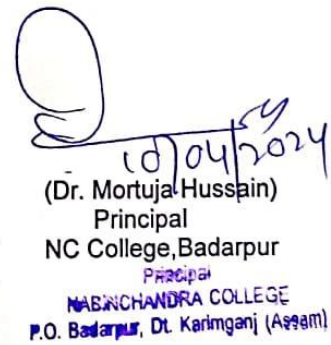 10/04/2024
(Dr. Mortuja Hussain)
Principal
NC College,Badarpur
Principal
NABINCHANDRA COLLEGE
P.O. Badarpur, Dt. Karimganj (Assam)